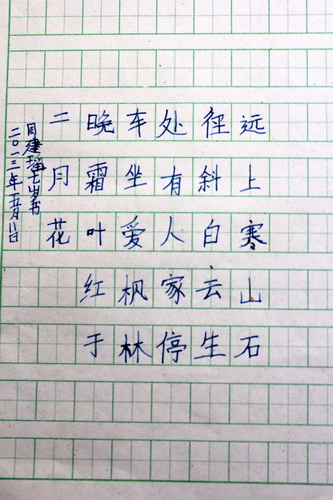 远上寒山石
径斜白云生
处有人家停
车坐爱枫林
晚霜叶红于
二月花
周建岁书
二〇一三年五月八日